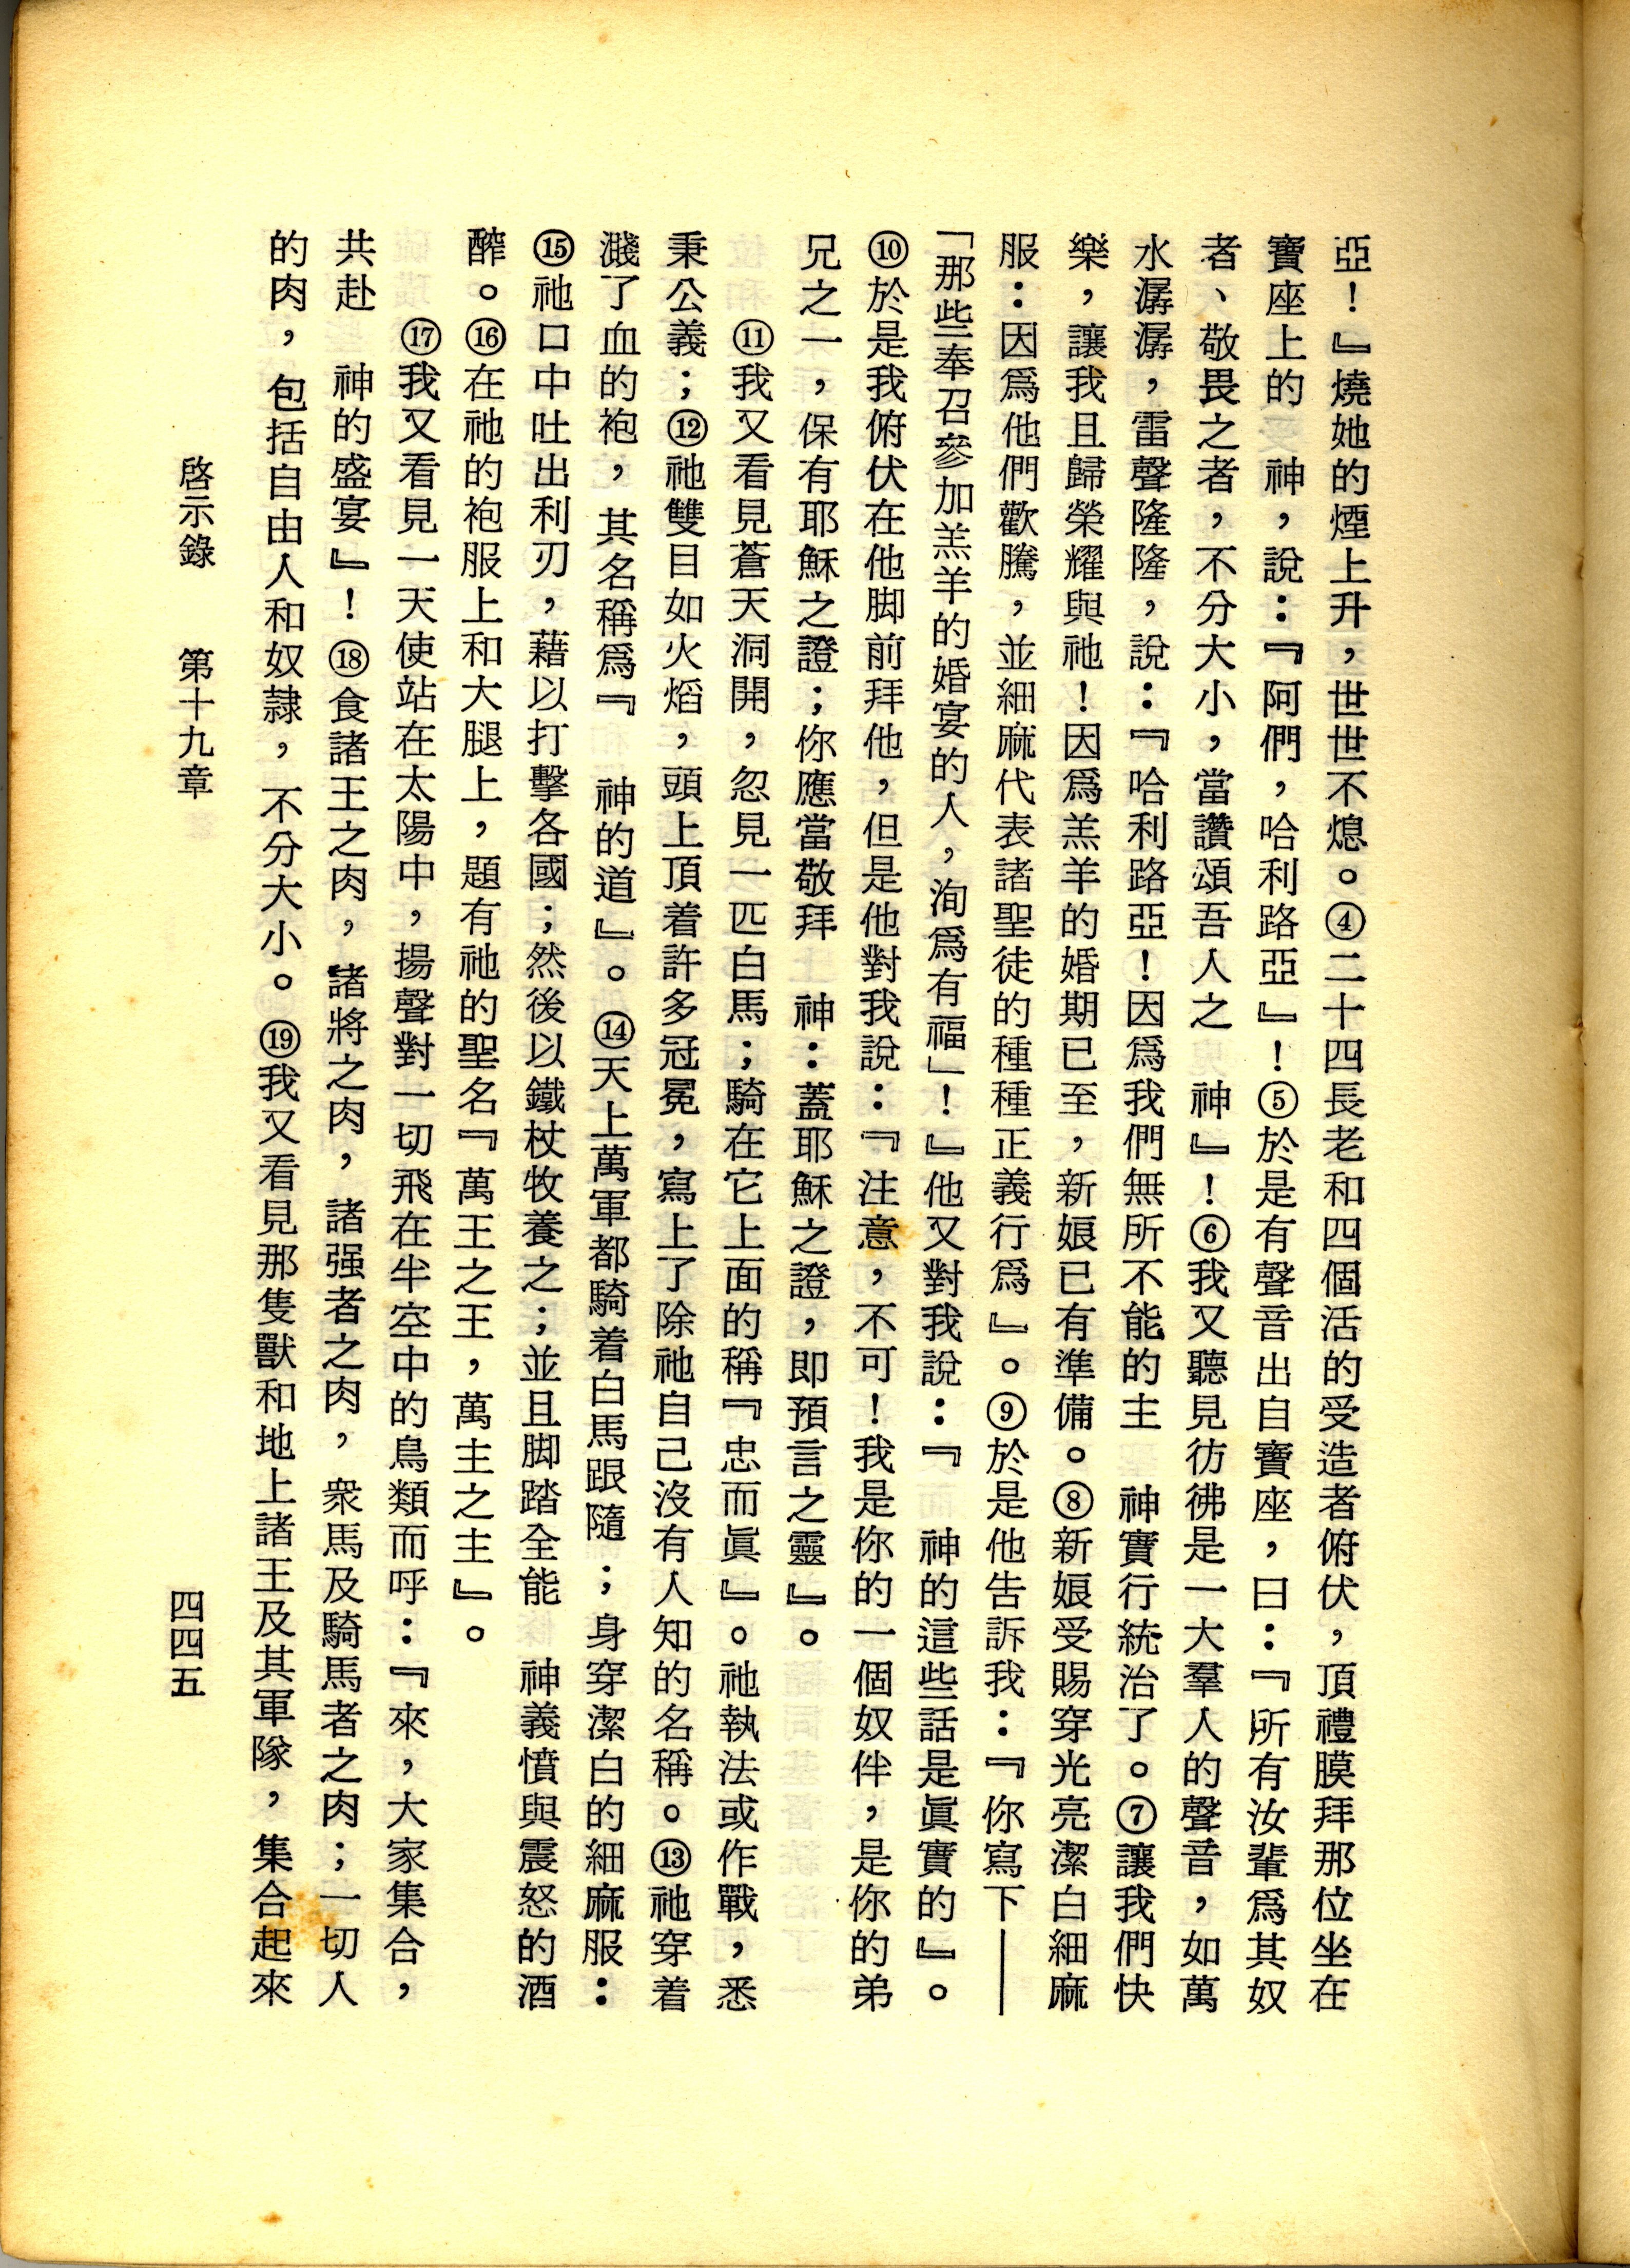 亞！』燒她的煙上升，世世不熄。④二十四長老和四個活的受造者俯伏，頂禮膜拜那位坐在
寶座上的　神，說：『阿們，哈利路亞』！⑤於是有聲音出自寶座，曰：『所有汝輩爲其奴
者、敬畏之者，不分大小，當讚頌吾人之　神』！⑥我又聽見彷彿是一大羣人的聲音，如萬
水潺潺，雷聲隆隆，說：『哈利路亞！因爲我們無所不能的主　神實行統治了。⑦讓我們快
樂，讓我且歸榮耀與祂！因爲羔羊的婚期已至，新娘已有準備。⑧新娘受賜穿光亮潔白細麻
服：因爲他們歡騰，並細麻代表諸聖徒的種種正義行爲』。⑨於是他告訴我：『你寫下——
「那些奉召參加羔羊的婚宴的人，洵爲有福」！』他又對我說：『　神的這些話是眞實的』。
⑩於是我俯伏在他脚前拜他，但是他對我說：『注意，不可！我是你的一個奴伴，是你的弟
兄之一，保有耶穌之證；你應當敬拜　神：蓋耶穌之證，即預言之靈』。
⑪我又看見蒼天洞開，忽見一匹白馬；騎在它上面的稱『忠而眞』。祂執法或作戰，悉
秉公義；⑫祂雙目如火焰，頭上頂着許多冠冕，寫上了除祂自己沒有人知的名稱。⑬祂穿着
濺了血的袍，其名稱爲『　神的道』。⑭天上萬軍都騎着白馬跟隨；身穿潔白的細麻服：
⑮祂口中吐出利刃，藉以打擊各國；然後以鐵杖牧養之；並且脚踏全能　神義憤與震怒的酒
醡。⑯在祂的袍服上和大腿上，題有祂的聖名『萬王之王，萬主之主』。
⑰我又看見一天使站在太陽中，揚聲對一切飛在半空中的鳥類而呼：『來，大家集合，
共赴　神的盛宴』！⑱食諸王之肉，諸將之肉，諸强者之肉，衆馬及騎馬者之肉；一切人
的肉，包括自由人和奴隷，不分大小。⑲我又看見那隻獸和地上諸王及其軍隊，集合起來
啓示錄　第十九章
四四五